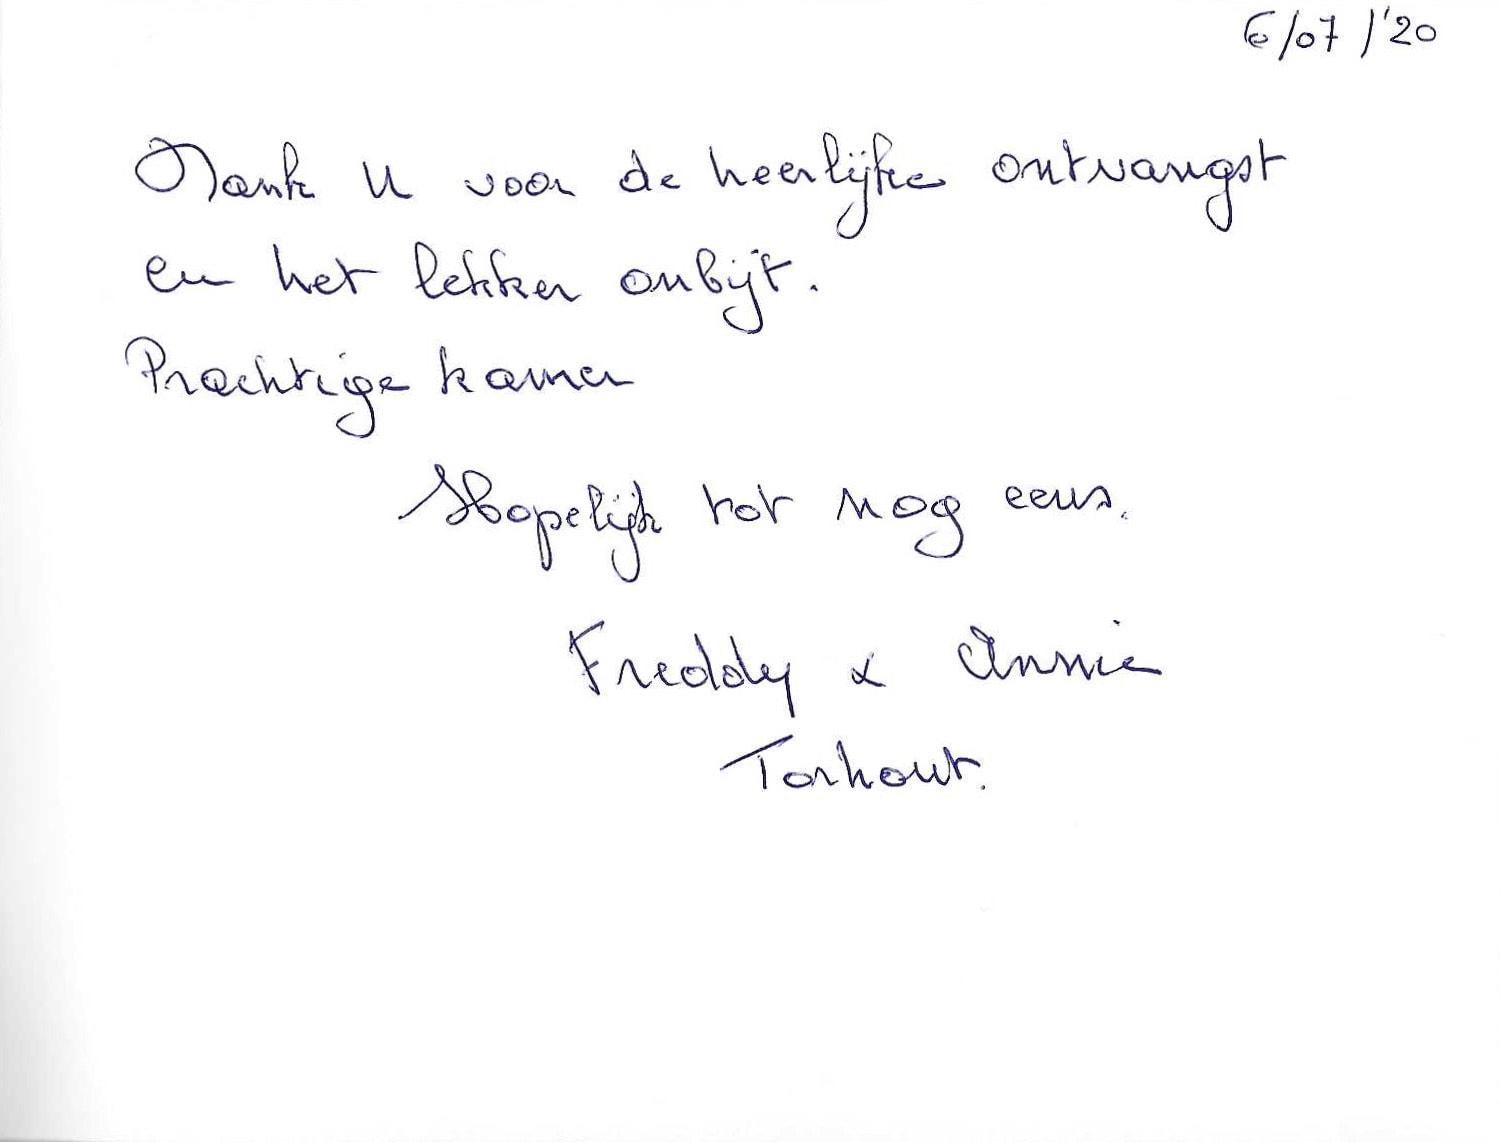 6/07/'20
Dank U voor de heerlijke ontvangst
en het lekker onbijt.
Prachtige kamer
Hopelijk tot nog eens.
Freddy & Annie
Torhout.